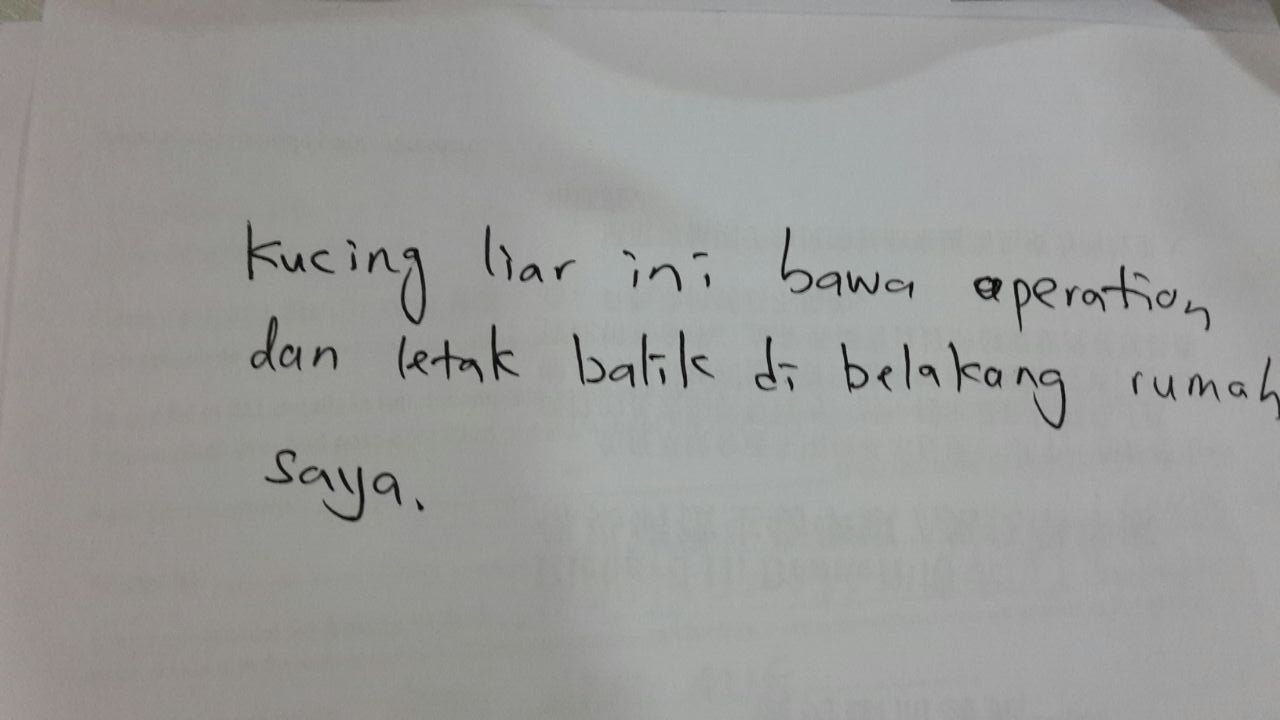 Kucing liar ini bawa operation
dan letak balik di belakang rumah
saya.